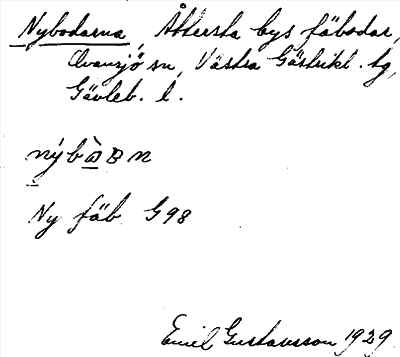 Nybodarna, Åttersta bys fäbodar,
Ovansjö sn, Västra Gästrikl. tg,
Gävleb. l.
Ny fäb. G98
Emil Gustavsson 1929